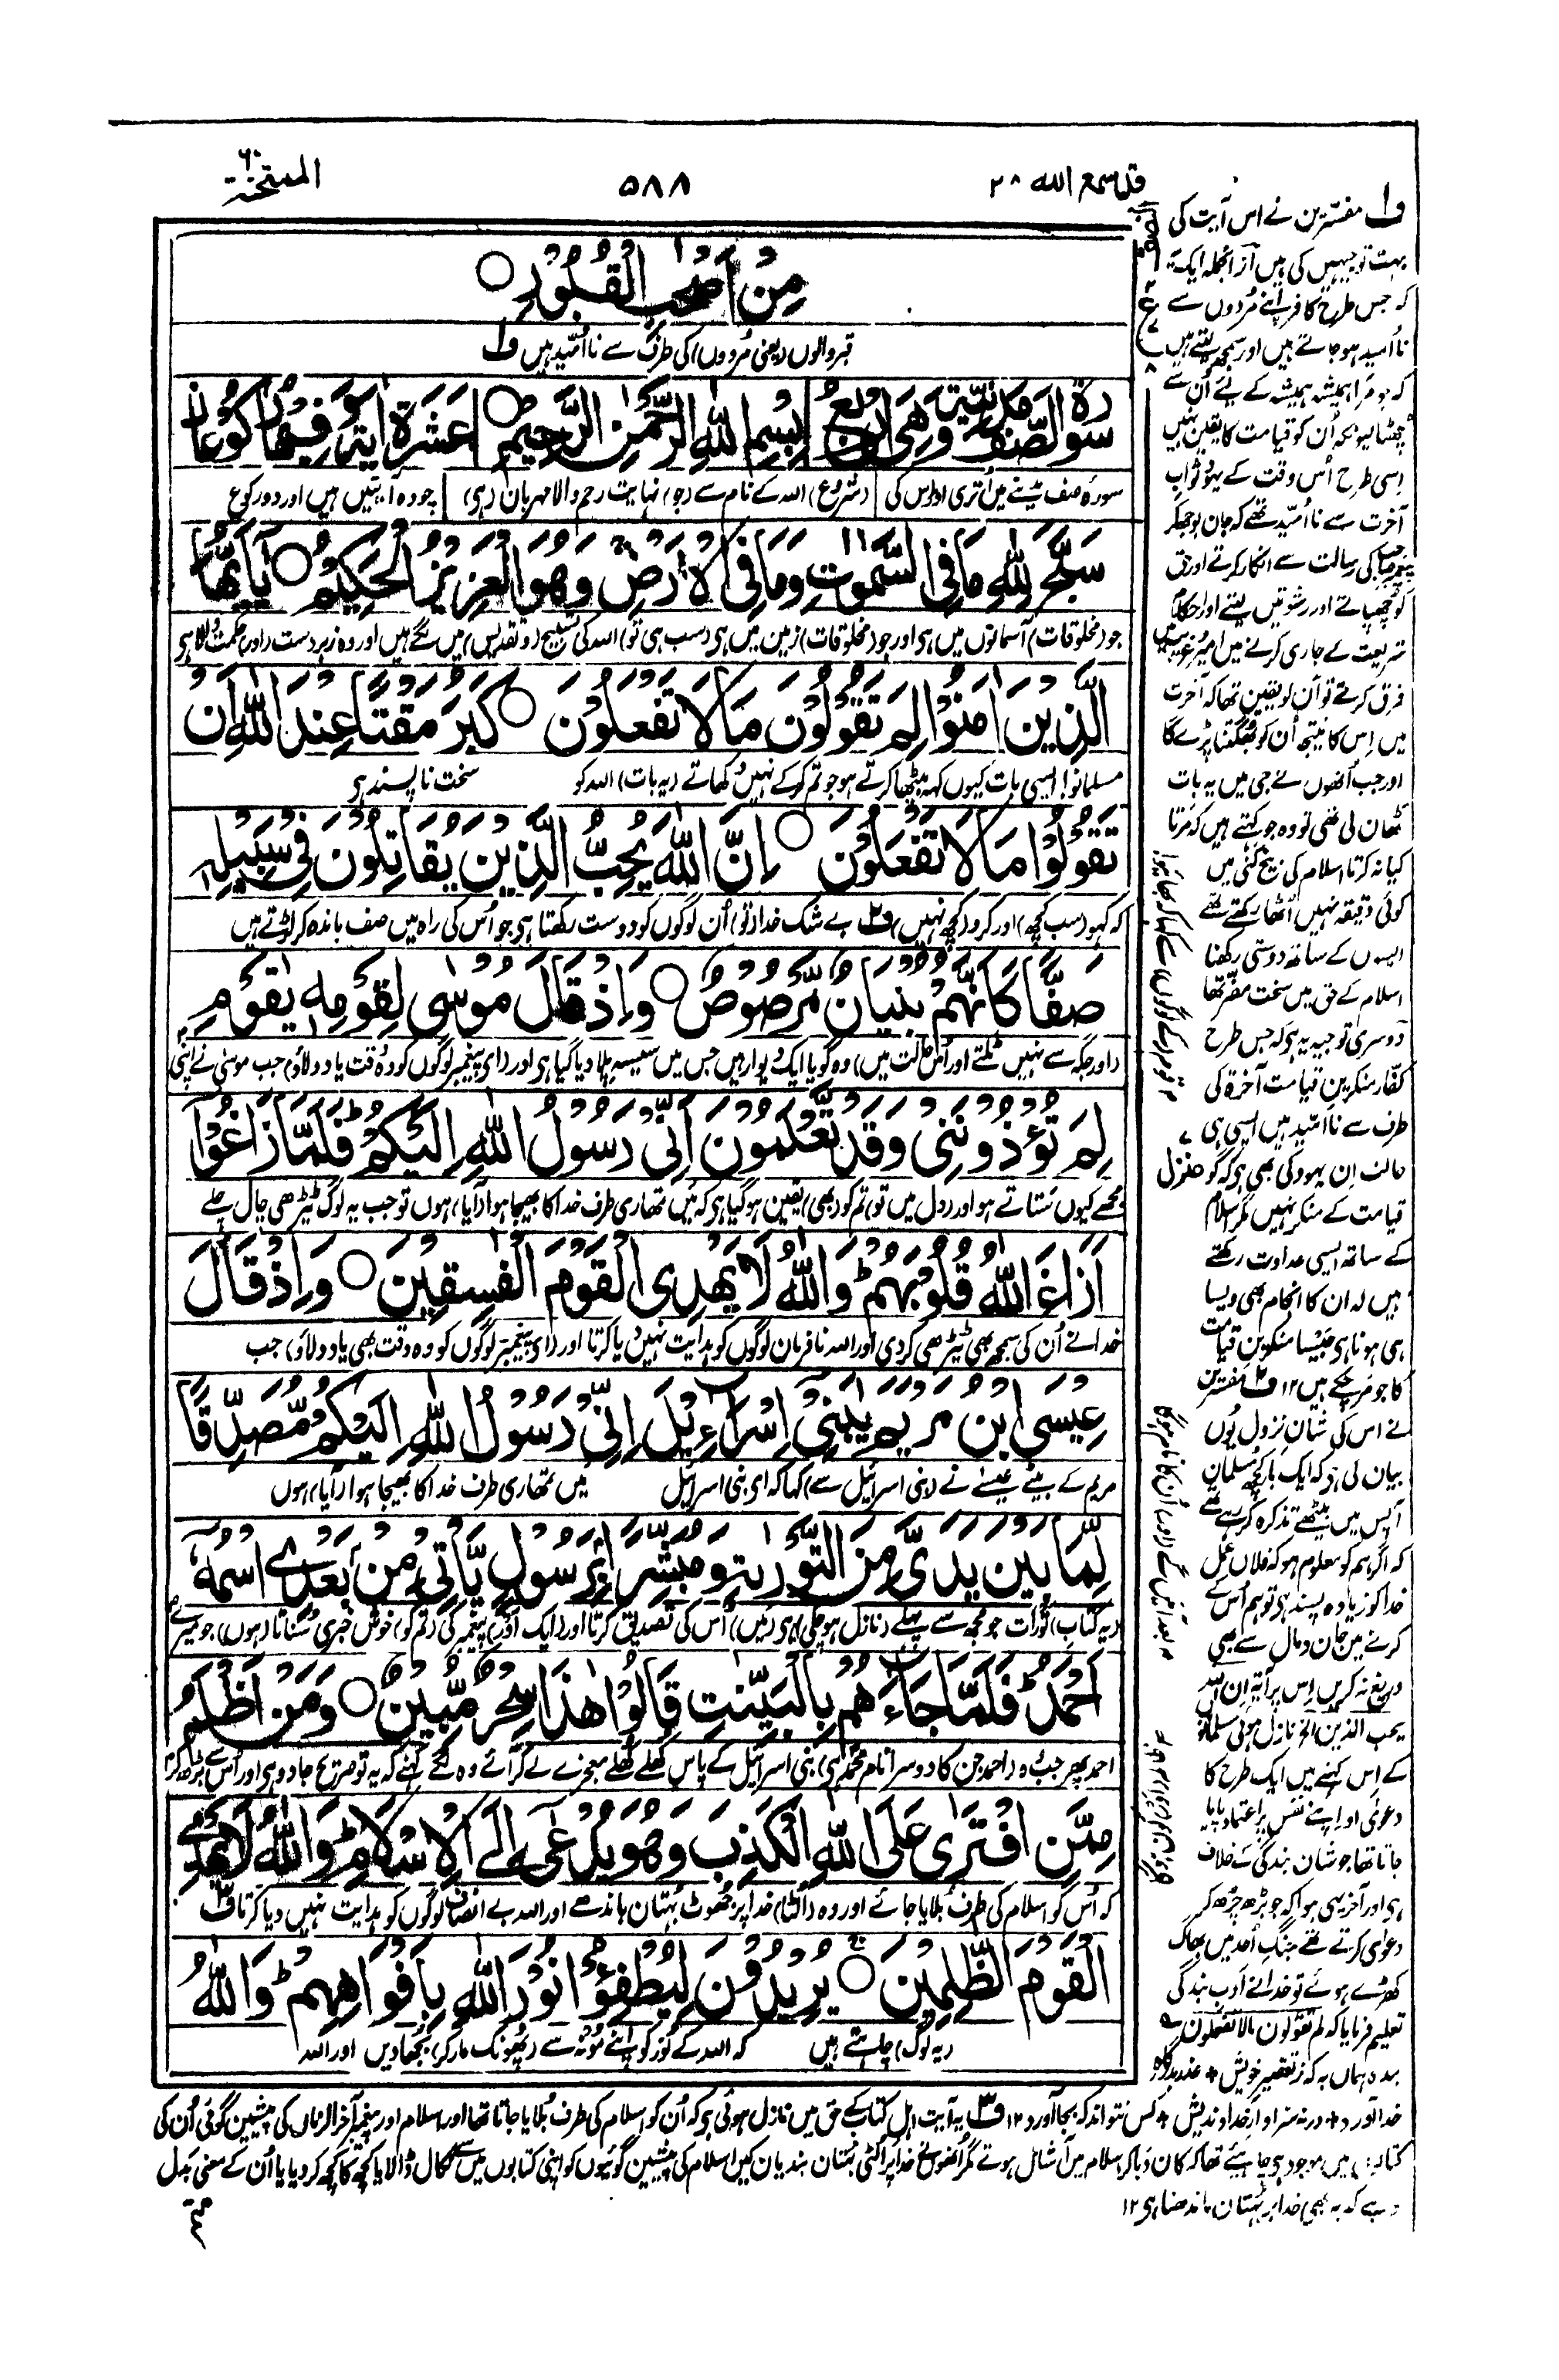 قد سمع الله ٢٨
٥٨٨
الممتحنة ٦٠
مِنْ أَصْحٰبِ الْقُبُوْرِ ○
قبر والوں (یعنی مُردوں) کی طرف سے نااُمّید ہیں ف۱
سورة الصف مدنیة وهی اربع | بِسْمِ اللهِ الرَّحْمٰنِ الرَّحِیْمِ ○ | عَشَرَةَ اٰیَة وفیها رکوعان
سورۂ صف مدینے میں اُتری اور اس کی | (شروع) اللہ کے نام سے (جو) نہایت رحم والا مہربان (ہی) | چودہ آیتیں ہیں اور دو رکوع
سَبَّحَ لِلّٰهِ مَا فِی السَّمٰوٰتِ وَمَا فِی الْاَرْضِ وَهُوَ الْعَزِیْزُ الْحَكِیْمُ ○ یٰۤاَیُّهَا
جو (مخلوقات) آسمانوں میں ہی اور جو (مخلوقات) زمین میں ہی (سب ہی تو) اللہ کی تسبیح (و تقدیس) میں لگے ہیں اور وہ زبردست (اور) حکمت والا ہی
الَّذِیْنَ اٰمَنُوْا لِمَ تَقُوْلُوْنَ مَا لَا تَفْعَلُوْنَ ○ كَبُرَ مَقْتًا عِنْدَ اللّٰهِ اَنْ
مسلمانو! ایسی بات کیوں کہہ بیٹھا کرتے ہو جو تم کرکے نہیں دکھاتے (یہ بات) اللہ کو سخت ناپسند ہی
تَقُوْلُوْا مَا لَا تَفْعَلُوْنَ ○ اِنَّ اللّٰهَ یُحِبُّ الَّذِیْنَ یُقَاتِلُوْنَ فِیْ سَبِیْلِهٖ
کہ کہو (سب کچھ) اور کرو (کچھ نہیں) ف۲ بے شک خدا (تو) اُن لوگوں کو دوست رکھتا ہی جو اُس کی راہ میں صف باندھ کر لڑتے ہیں
صَفًّا كَاَنَّهُمْ بُنْیَانٌ مَّرْصُوْصٌ ○ وَاِذْ قَالَ مُوْسٰی لِقَوْمِهٖ یٰقَوْمِ
(اور جگہ سے نہیں ٹلتے اور اُس حالت میں) وہ گویا ایک دیوار ہیں جس میں سیسہ پلا دیا گیا ہی اور (ای پیغمبر لوگوں کو وہ وقت یاد دلاؤ) جب موسیٰ نے اپنی
لِمَ تُؤْذُوْنَنِیْ وَقَدْ تَّعْلَمُوْنَ اَنِّیْ رَسُوْلُ اللّٰهِ اِلَیْكُمْ ؕ فَلَمَّا زَاغُوْۤا
مجھے کیوں ستاتے ہو اور (دل میں تو) تم کو (بھی) یقین ہو گیا ہی کہ میں تمھاری طرف خدا کا بھیجا ہوا (آیا) ہوں تو جب یہ لوگ ٹیڑھی چال چلے
اَزَاغَ اللّٰهُ قُلُوْبَهُمْ ؕ وَاللّٰهُ لَا یَهْدِی الْقَوْمَ الْفٰسِقِیْنَ ○ وَاِذْ قَالَ
خدا نے اُن کی سمجھ بھی ٹیڑھی کر دی اور اللہ نافرمان لوگوں کو ہدایت نہیں دیا کرتا اور (ای پیغمبر لوگوں کو وہ وقت بھی یاد دلاؤ) جب
عِیْسَی ابْنُ مَرْیَمَ یٰبَنِیْۤ اِسْرَآءِیْلَ اِنِّیْ رَسُوْلُ اللّٰهِ اِلَیْكُمْ مُّصَدِّقًا
مریم کے بیٹے عیسےٰ نے (بنی اسرائیل سے) کہا کہ ای بنی اسرائیل میں تمھاری طرف خدا کا بھیجا ہوا (آیا) ہوں
لِّمَا بَیْنَ یَدَیَّ مِنَ التَّوْرٰىةِ وَمُبَشِّرًۢا بِرَسُوْلٍ یَّاْتِیْ مِنْۢ بَعْدِی اسْمُهٗۤ
(یہ کتاب) تورات جو مجھ سے پہلے (نازل ہو چکی) ہی (میں) اُس کی تصدیق کرتا اور (ایک اور) پیغمبر کی (تم کو) خوش خبری سناتا (ہوں) جو میرے
اَحْمَدُ ؕ فَلَمَّا جَآءَهُمْ بِالْبَیِّنٰتِ قَالُوْا هٰذَا سِحْرٌ مُّبِیْنٌ ○ وَمَنْ اَظْلَمُ
احمد پھر جب وہ (احمد جن کا دوسرا نام محمد ہی) بنی اسرائیل کے پاس کھلے کھلے معجزے لے کر آئے وہ لگے کہنے کہ یہ تو صریح جادو ہی اور اُس سے بڑھ کر
مِمَّنِ افْتَرٰی عَلَی اللّٰهِ الْكَذِبَ وَهُوَ یُدْعٰۤی اِلَی الْاِسْلَامِ ؕ وَاللّٰهُ لَا یَهْدِی
کہ اُس کو اسلام کی طرف بلایا جائے اور وہ (اُلٹا) خدا پر جھوٹ بہتان باندھے اور اللہ بے انصاف لوگوں کو ہدایت نہیں دیا کرتا ف۳
الْقَوْمَ الظّٰلِمِیْنَ ○ یُرِیْدُوْنَ لِیُطْفِـُٔوْا نُوْرَ اللّٰهِ بِاَفْوَاهِهِمْ ؕ وَاللّٰهُ
(یہ لوگ) چاہتے ہیں کہ اللہ کے نور کو اپنے مونھ سے (پھونک مار کر) بجھا دیں اور اللہ
ف۱ مفسّرین نے اس آیت کی
بہت توجیہیں کی ہیں ازانجملہ ایک یہ
کہ جس طرح کافر اپنے مُردوں سے
نااُمید ہو جاتے ہیں اور سمجھ لیتے ہیں
کہ جو مرا ہمیشہ ہمیشہ کے لیے اُن سے
چھٹا کیونکہ اُن کو قیامت کا یقین نہیں
اِسی طرح اُس وقت کے یہود ثواب
آخرت سے نااُمّید تھے کہ جان بوجھکر
پیغمبر صاحب کی رسالت سے انکار کرتے اور حق
کو چھپاتے اور رشوتیں لیتے اور احکام
شریعت کے جاری کرنے میں امیر غریب میں
فرق کرتے تو اُن کو یقین تھا کہ آخرت
میں اِس کا نتیجہ اُن کو بھگتنا پڑے گا
اور جب اُنھوں نے جی میں یہ بات
ٹھان لی تھی تو وہ جو کہتے ہیں کہ مرتا
کیا نہ کرتا اسلام کی بیخ کنی میں
کوئی دقیقہ نہیں اُٹھا رکھتے تھے
ایسوں کے ساتھ دوستی رکھنا
اسلام کے حق میں سخت مضر تھا
دوسری توجیہ یہ ہی کہ جس طرح
کفّار منکرین قیامت آخرة کی
طرف سے نااُمّید ہیں ایسی ہی
حالت اِن یہود کی بھی ہی کہ گو
قیامت کے منکر نہیں مگر اسلام
کے ساتھ ایسی عداوت رکھتے
ہیں کہ ان کا انجام بھی ویسا
ہی ہونا ہی جیسا منکرین قیامت
کا جو مر چکے ہیں ۱۲ ف۲ مفسّرین
نے اس کی شان نزول یوں
بیان کی ہی کہ ایک بار کچھ مسلمان
آپس میں بیٹھے تذکرہ کر رہے تھے
کہ اگر ہم کو معلوم ہو کہ فلاں عمل
خدا کو زیادہ پسند ہی تو ہم اُس کے
کرنے میں جان و مال سے بھی
دریغ نہ کریں اِس پر آیۃ اِن اللہ
یحب الذین الخ نازل ہوئی مسلمانوں
کے اِس کہنے میں ایک طرح کا
دعویٰ اور اپنے نفس پر اعتماد پایا
جاتا تھا جو شان بندگی کے خلاف
ہی اور آخر یہی ہوا کہ جو بڑھ بڑھ کر
دعویٰ کرتے تھے جنگِ اُحد میں بھاگ
کھڑے ہوئے تو خدا نے ادب بندگی
تعلیم فرمایا کہ لم تقولون مالا تفعلون
بندہ ہماں بہ کہ ز تقصیر خویش + عذر بدرگاہ
خدا آورد + ورنہ سزاوار خداوندیش + کس نتواند کہ بجا آورد ۱۲ ف۳ یہ آیت اہل کتاب کے حق میں نازل ہوئی ہی کہ اُن کو اسلام کی طرف بُلایا جاتا تھا اور اسلام اور پیغمبر آخر الزماں کی پیشین گوئی اُن کی
کتابوں میں موجود ہی چاہیئے تھا کہ کان دبا کر اسلام میں آ شامل ہوتے مگر اُنھوں نے خدا پر اُلٹی بُہتان بندیاں کیں اسلام کی پیشین گوئیوں کو اپنی کتابوں میں سے نکال ڈالا یا کچھ کا کچھ کر دیا یا اُن کے معنی بدل
دیے کہ یہ بھی خدا پر بُہتان باندھنا ہی ۱۲
قوم کے لوگوں سے کہا کہ بھائیو!
بعد آئیں گے (اور) اُن کا نام ہو گا